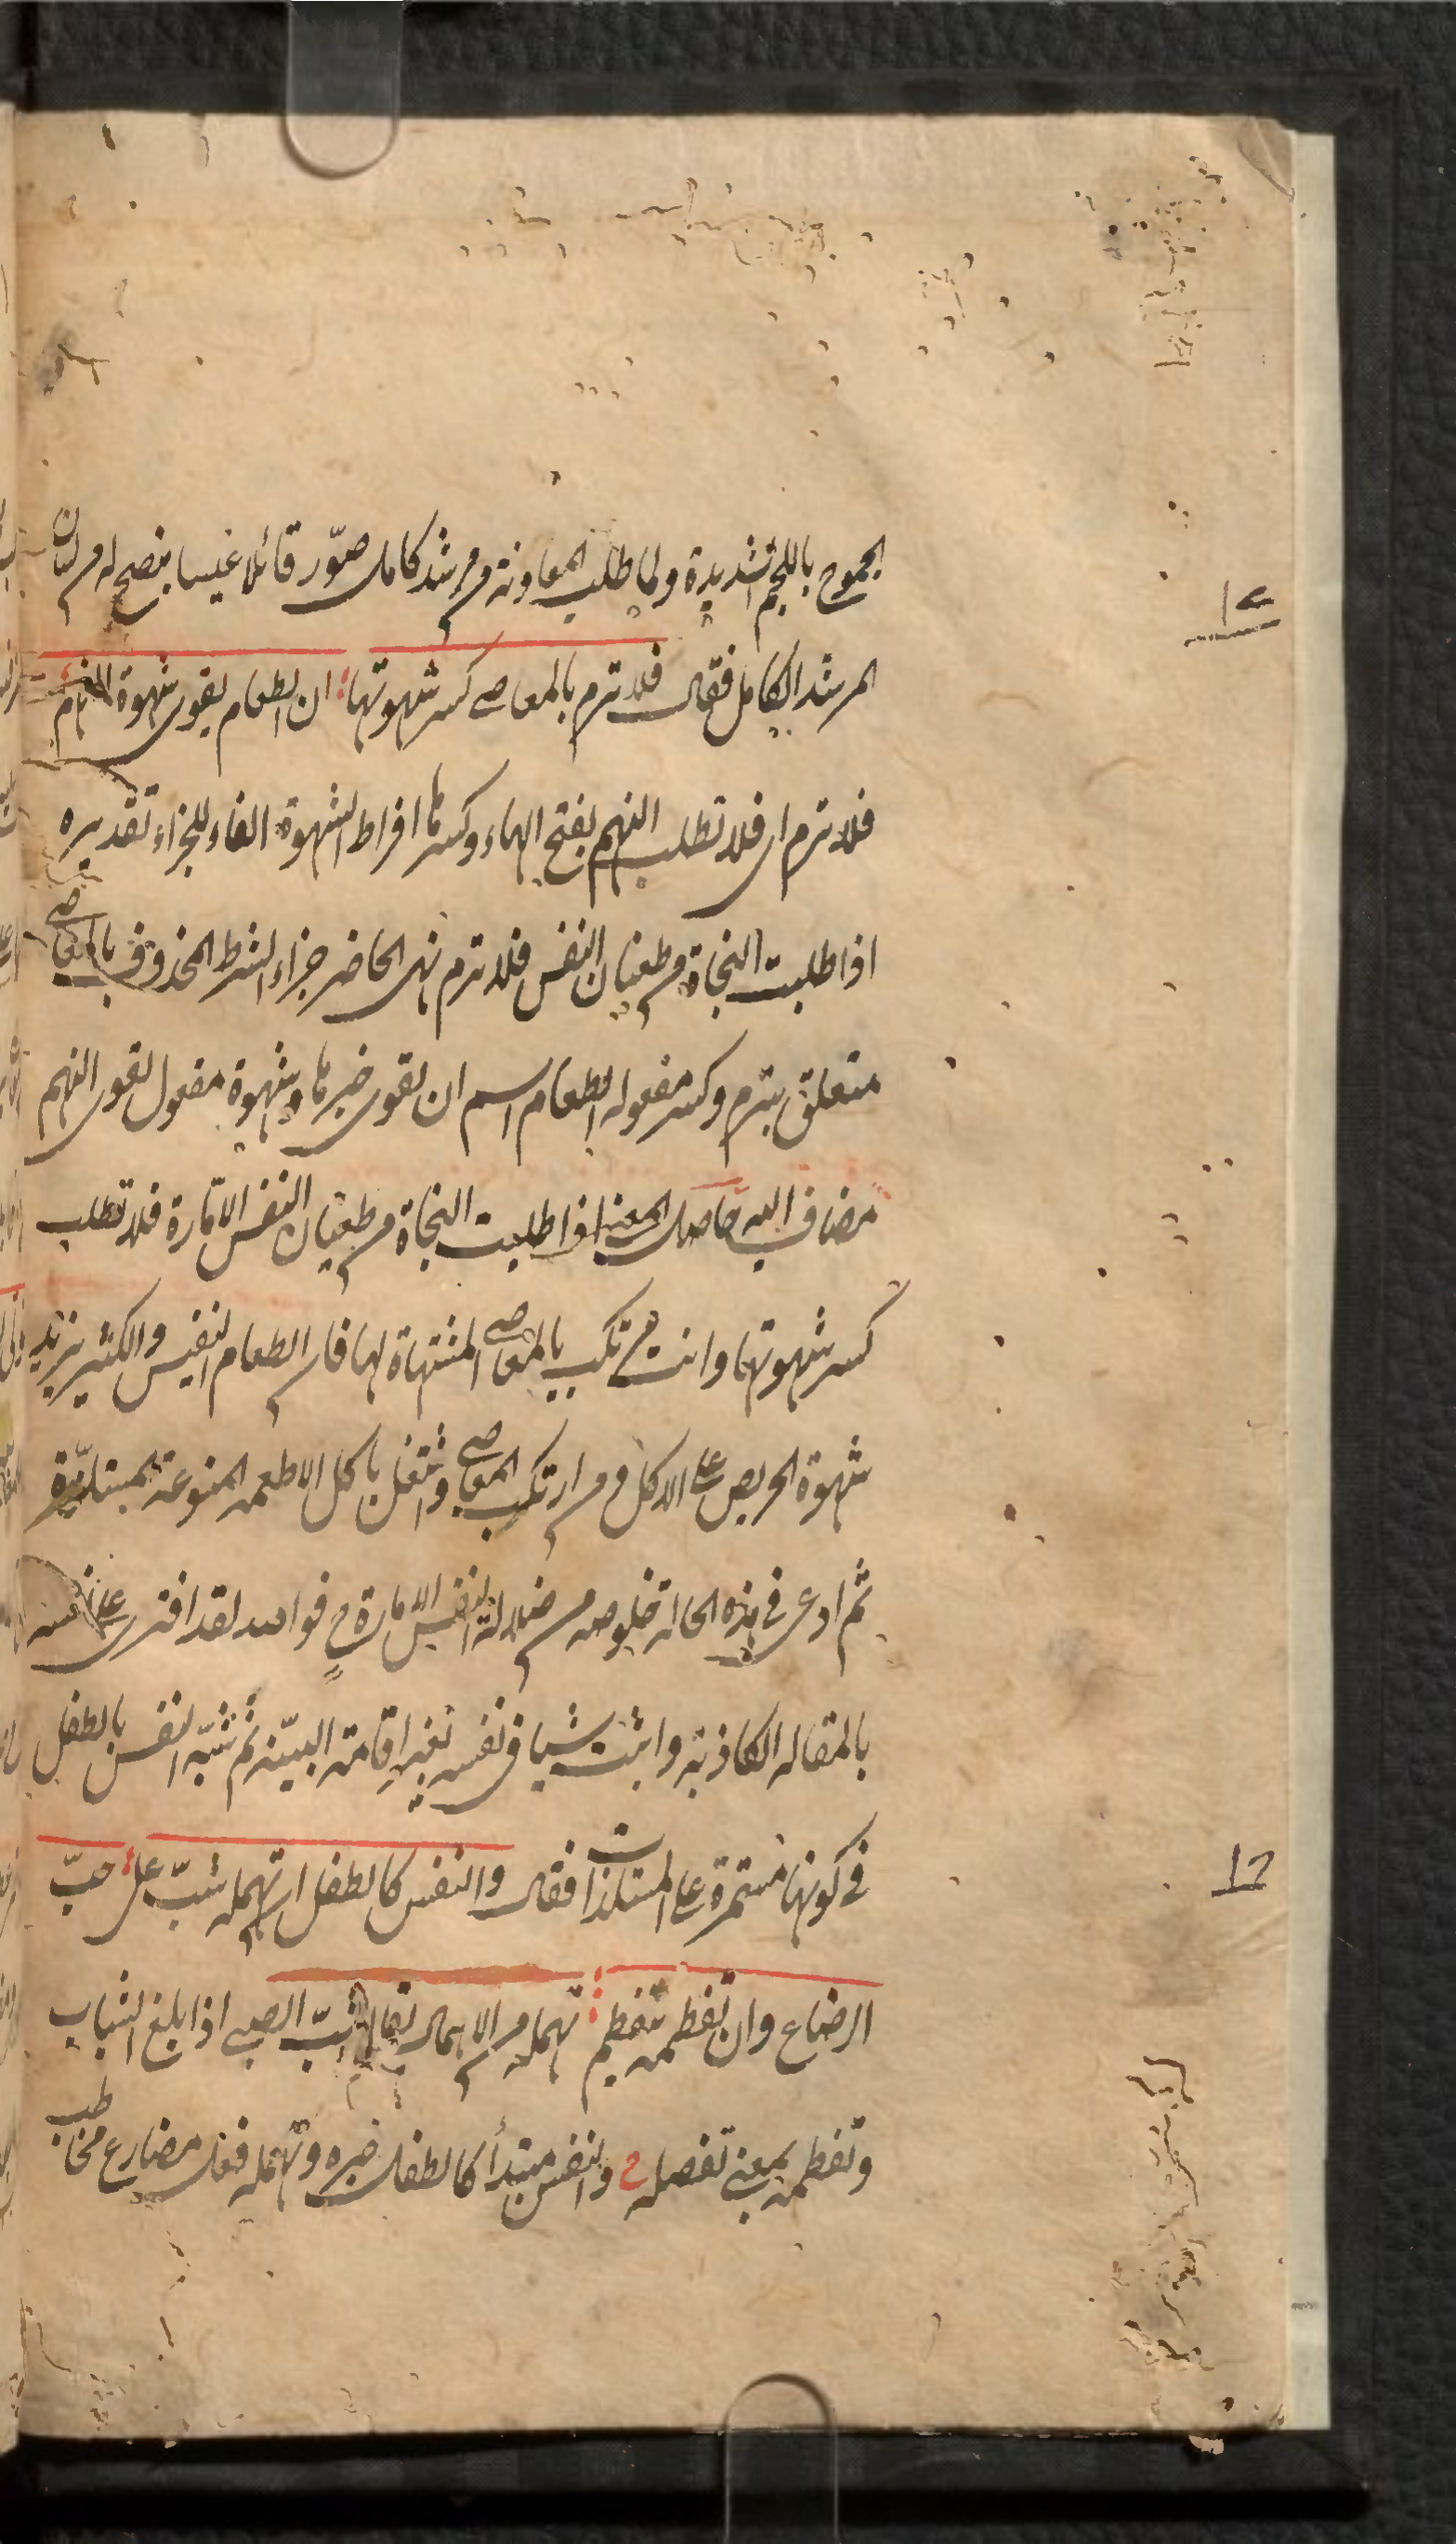 الجموح باللجم الشديدة ولما طلب المعاونة من مرشد كامل صوّر قائلا غيبيا ينصح له من لسان
المرشد الكامل فقال فلا ترم بالمعاصى كسر شهوتها ان الطعام يقوى شهوة النهم
فلا ترم اى فلا تطلب النهم بفتح الهاء وكسرها افراط الشهوة الفاء للجزاء تقديره
اذا طلبت النجاة من طغيان النفس فلا ترم نهى الحاضر جزاء الشرط المحذوف بالمعاصى
متعلق بترم وكسر مفعوله الطعام اسم ان يقوى خبرها وشهوة مفعول يقوى النهم
مضاف اليه حاصل المعنى اذا طلبت النجاة من طغيان النفس الامّارة فلا تطلب
كسر شهوتها وانت مرتكب بالمعاصى المشتهاة لها فان الطعام النفيس والكثير يزيد
شهوة الحريص على الاكل ومن ارتكب المعاصى واشتغل باكل الاطعمه المنوعة
ثم ادعى فى هذه الحالة خلوصه من ضلالة النفس الامارة ح فوالله لقد افترى على نفسه
بالمقاله الكاذبة واثبت شيا فى نفسه بغير اقامة البيّنه ثم شبّه النفس بالطفل
فى كونها مستمرة على المستلذات فقال والنفس كالطفل ان تهمله شبّ على حبّ
الرضاع وان تفطمه ينفطم تهمله من الاهمال يقال شبّ الصبى اذا بلغ الشباب
وتفطمه بمعنى تفصله ح والنفس مبتدأ كالطفل خبره وتهمله فعل مضارع مخاطب